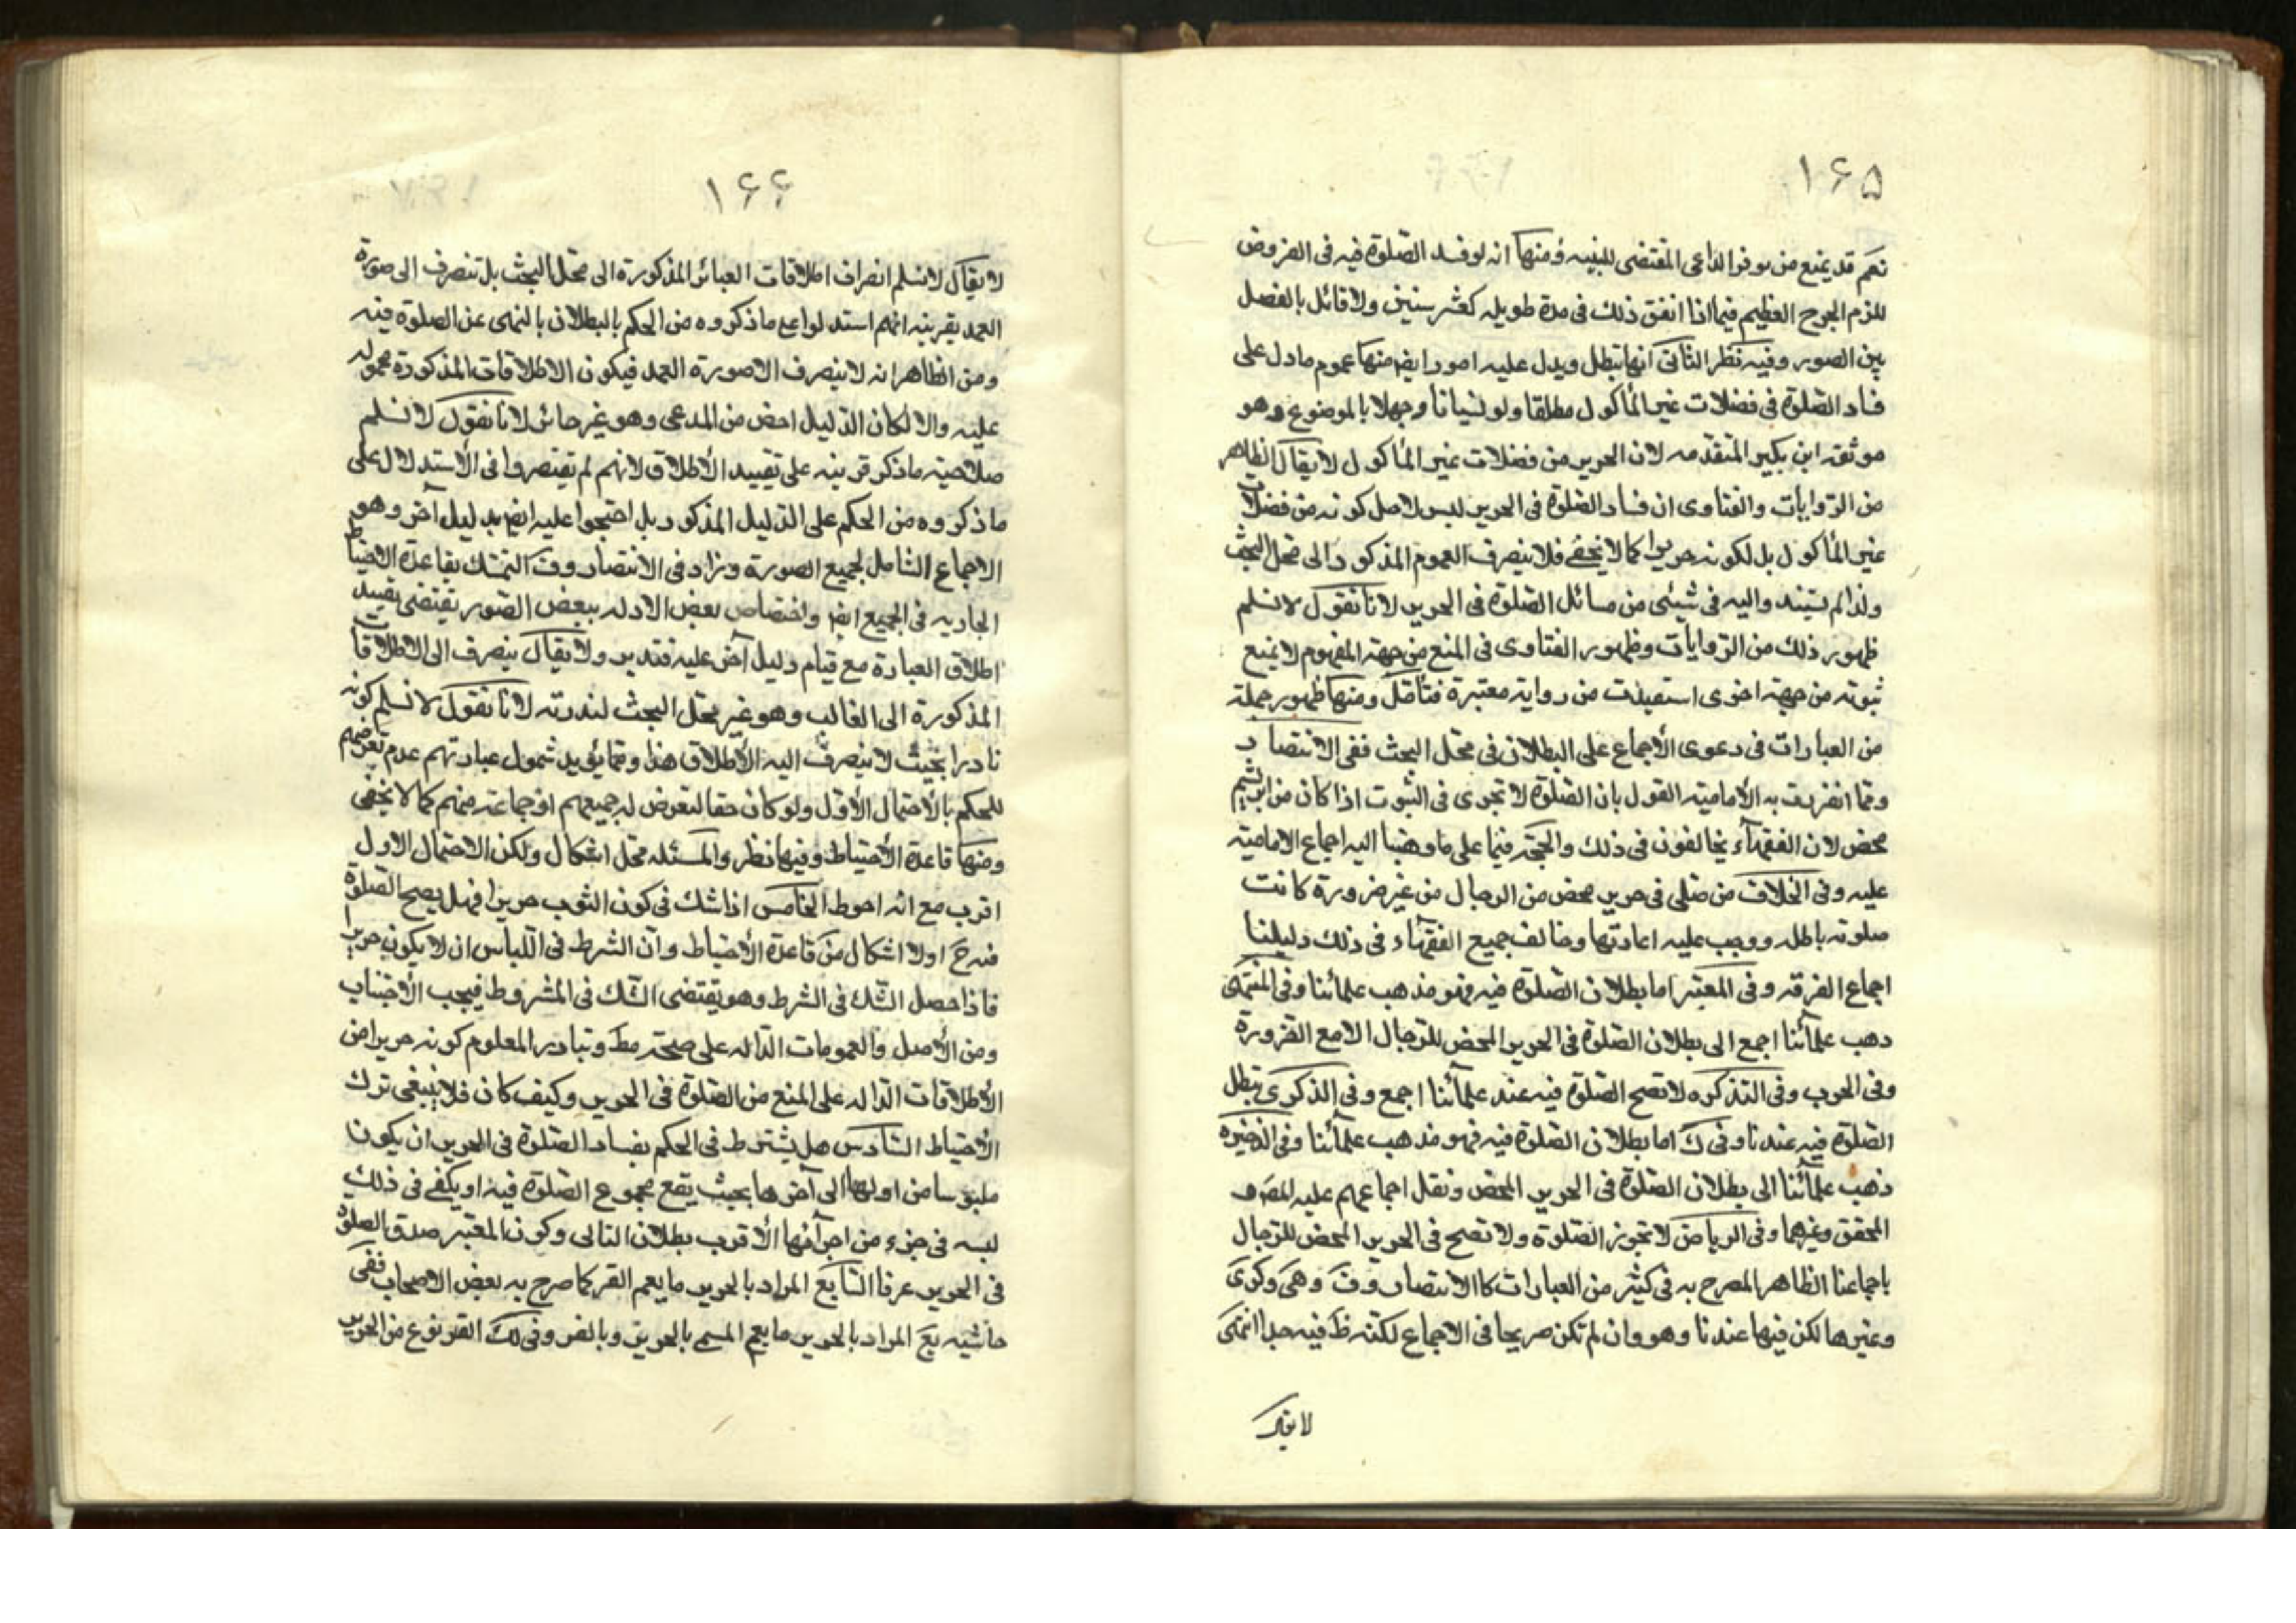 ۱۶۵
نعم قد يمنع من توفر الداعى المقتضى للبنيه ومنها انه لو فسد الصّلوة فيه فى الفروض
للزم الحرج العظيم فيما اذا اتفق ذلك فى مدة طويله كعشر سنين ولا قائل بالفصل
بين الصور وفيه نظر الثانى انها تبطل ويدل عليه امور ايضا منها عموم ما دل على
فساد الصّلوة فى فضلات غير المأكول مطلقا ولو نسيانا وجهلا بالموضوع وهو
موثقه ابن بكير المتقدّمه لان الحرير من فضلات غير المأكول لا يقال الظاهر
من الرّوايات والفتاوى ان فساد الصّلوة فى الحرير ليس لاصل كونه من فضلات
غير المأكول بل لكونه حريرا كما لا يخفى فلا ينصرف العموم المذكور الى محل البحث
ولذا لم يستندوا اليه فى شيئى من مسائل الصّلوة فى الحرير لانا نقول لا نسلم
ظهور ذلك من الرّوايات وظهور الفتاوى فى المنع من جهة المفهوم لا يمنع
ثبوته من جهة اخرى استفيدت من رواية معتبرة فتأمل ومنها ظهور جملة
من العبارات فى دعوى الأجماع على البطلان فى محل البحث ففى الانتصار
ومما انفردت به الأمامية القول بان الصّلوة لا تجزى فى الثبوت اذا كان من ابريشم
محض لان الفقهاء يخالفون فى ذلك والحجّة فيما على ما وهبنا اليه اجماع الامامية
عليه وفى الخلاف من صلى فى حرير محض من الرجال من غير ضرورة كانت
صلوته باطله ووجب عليه اعادتها وخالف جميع الفقهاء فى ذلك دليلنا
اجماع الفرقه وفى المعتبر اما بطلان الصّلوة فيه فهو مذهب علمائنا وفى المنتهى
ذهب علمآئنا اجمع الى بطلان الصّلوة فى الحرير المحض للرّجال الا مع الضرورة
وفى الحرب وفى التذكره لا تصح الصّلوة فيه عند علمآئنا اجمع وفى الذكرى تبطل
الصّلوة فيه عندنا وفى ك اما بطلان الصّلوة فيه فهو مذهب علمآئنا وفى الذخيره
ذهب علمآئنا الى بطلان الصّلوة فى الحرير المحض ونقل اجماعهم عليه المصنف
المحقق وغيرهما وفى الرياض لا تجوز الصّلوة ولا تصح فى الحرير المحض للرّجال
باجماعنا الظاهر المصرح به فى كثير من العبارات كالانتصار وف وهى وكرى
وغيرها لكن فيها عندنا وهو وان لم تكن صريحا فى الاجماع لكنّه ظ فيه جدا انتهى
لا يقال
۱۶۶
لا يقال لا نسلم انصراف اطلاقات العبائر المذكورة الى محل البحث بل تنصرف الى صورة
العمد بقرينه انهم استدلوا مع ما ذكروه من الحكم بالبطلان بالنهى عن الصلوة فيه
ومن الظاهر انه لا ينصرف الا صورة العمد فيكون الاطلاقات المذكورة محموله
عليه والا لكان الدّليل اخص من المدعى وهو غير جائز لانا نقول لا نسلم
صلاحية ما ذكر قرينه على تقييد الأطلاق لانهم لم يقتصروا فى الأستدلال على
ما ذكروه من الحكم على الدّليل المذكور بل احتجوا عليه ايضا بدليل آخر وهو
الاجماع الشامل لجميع الصورة وزاد فى الانتصار وف التمسّك بقاعدة الاحتياط
الجاريه فى الجميع ايضا واختصاص بعض الادله ببعض الصّور يقتضى تقييد
اطلاق العبارة مع قيام دليل آخر عليه فتدبر ولا يقال ينصرف الى الاطلاقات
المذكورة الى الغالب وهو غير محل البحث لندرته لانا نقول لا نسلم كونه
نادرا بحيث لا ينصرف اليه الأطلاق هذا ومما يؤيد شمول عبارتهم عدم تعرضهم
للحكم بالأحتمال الأوّل ولو كان حقا لتعرض له جميعهم او جماعة منهم كما لا يخفى
ومنها قاعدة الأحتياط وفيها نظر والمسئله محل اشكال ولكن الاحتمال الاول
اقرب مع انه احوط الخامس اذا شك فى كون الثوب حريرا فهل يصح الصّلوة
فيه ح اولا اشكال من قاعدة الأحتياط وان الشرط فى اللّباس ان لا يكون حريرا
فاذا حصل الشّك فى الشرط وهو يقتضى الشّك فى المشروط فيجب الأجتناب
ومن الأصل والعمومات الدّاله على صحته مط وتبادر المعلوم كونه حريرا من
الأطلاقات الدّاله على المنع من الصّلوة فى الحرير وكيف كان فلا ينبغى ترك
الأحتياط السّادس هل يشترط فى الحكم بفساد الصّلوة فى الحرير ان يكون
ملبوسا من اولها الى آخرها بحيث يقع مجموع الصّلوة فيه او يكفى فى ذلك
لبسه فى جزء من اجزآئها الأقرب بطلان التالى وكون المعتبر صدق الصلوة
فى الحرير عرفا السّابع المراد بالحرير ما يعم القز كما صرح به بعض الاصحاب ففى
حاشيه يع المراد بالحرير ما يعم المسمى بالحرير وبالقز وفى لك القز نوع من الحرير